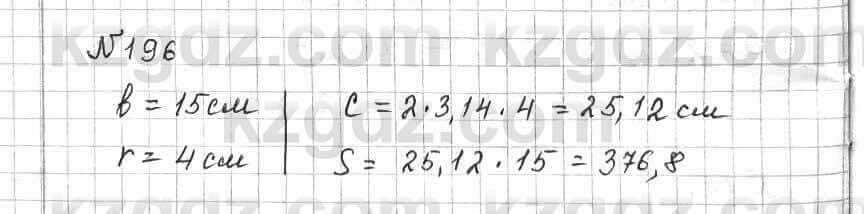 kzgdz.com kzgdz.com
№196
b = 15 см | C = 2·3,14·4 = 25,12 см
r = 4 см | S = 25,12·15 = 376,8